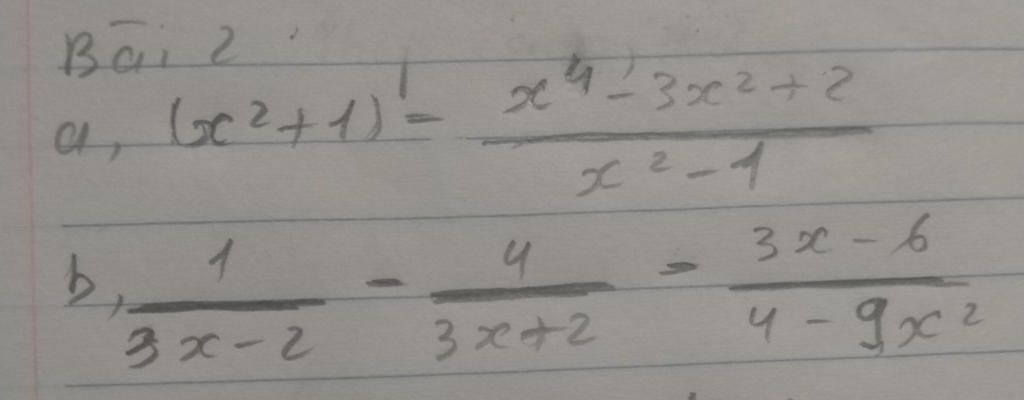 Bài 2
a, (x²+1) - \frac{x⁴-3x²+2}{x²-1}
b, \frac{1}{3x-2} - \frac{4}{3x+2} - \frac{3x-6}{4-9x²}